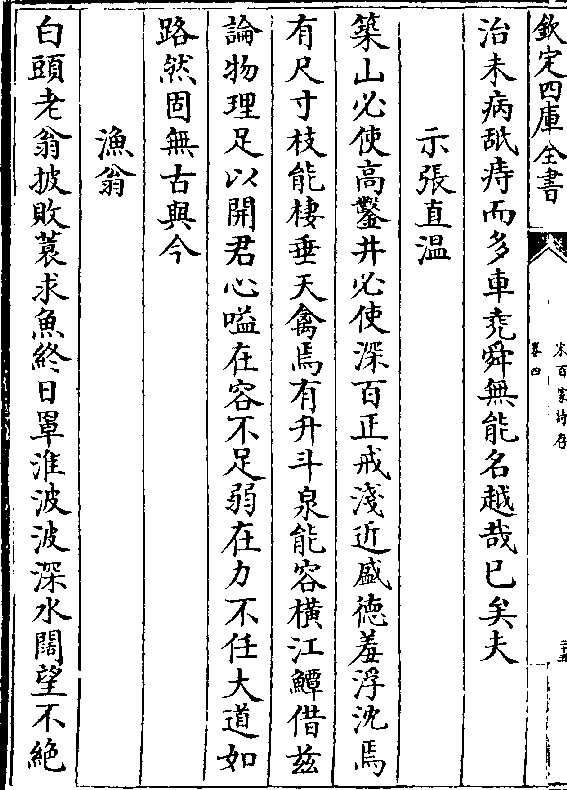 欽定四庫全書
宋百家詩存
卷四
治未病舐痔而多車堯舜無能名越哉已矣夫
示張直温
築山必使高鑿井必使深百正戒淺近盛德羞浮沈焉
有尺寸枝能棲垂天禽焉有升斗泉能容橫江鱏借兹
論物理足以開君心嗌在容不足弱在力不任大道如
路然固無古與今
漁翁
白頭老翁披敗蓑求魚終日罩淮波波深水闊望不絶